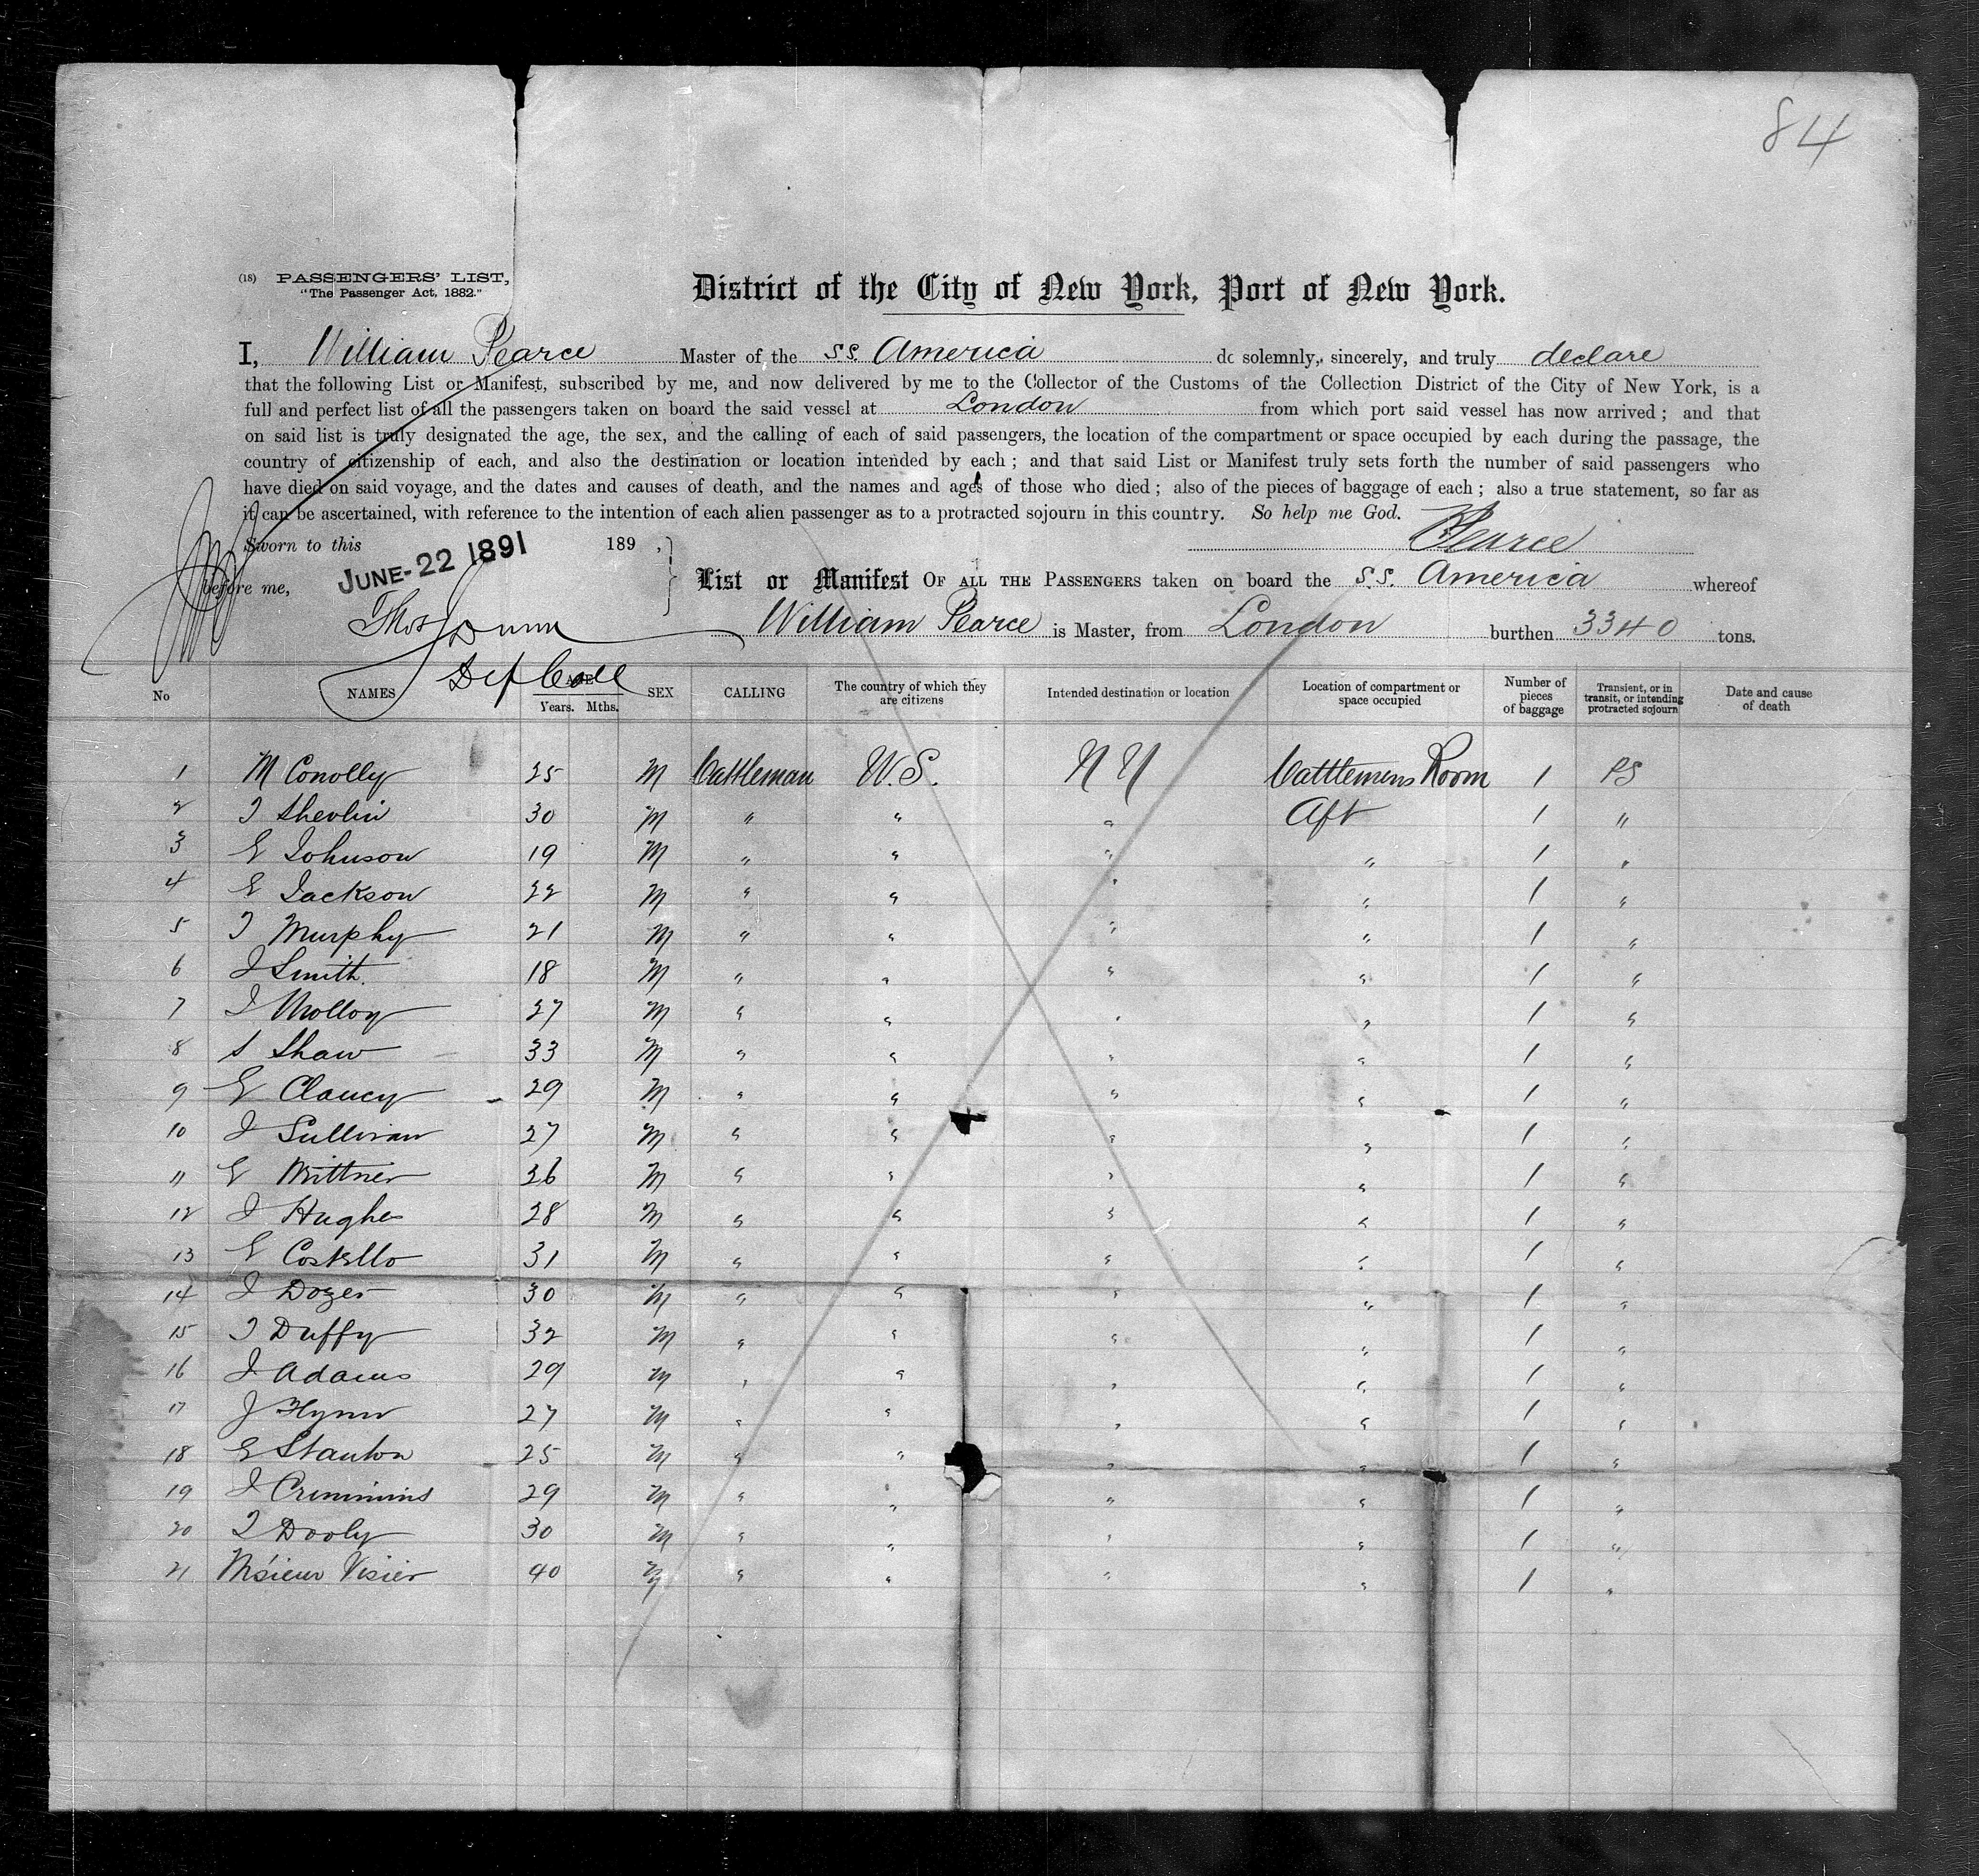 84
(18) PASSENGERS' LIST,
"The Passenger Act, 1882."
District of the City of New York, Port of New York.
I, William Pearce Master of the S.S. America do solemnly, sincerely, and truly declare
that the following List or Manifest, subscribed by me, and now delivered by me to the Collector of the Customs of the Collection District of the City of New York, is a
full and perfect list of all the passengers taken on board the said vessel at London from which port said vessel has now arrived; and that
on said list is truly designated the age, the sex, and the calling of each of said passengers, the location of the compartment or space occupied by each during the passage, the
country of citizenship of each, and also the destination or location intended by each; and that said List or Manifest truly sets forth the number of said passengers who
have died on said voyage, and the dates and causes of death, and the names and ages of those who died; also of the pieces of baggage of each; also a true statement, so far as
it can be ascertained, with reference to the intention of each alien passenger as to a protracted sojourn in this country. So help me God.
Sworn to this JUNE-22 1891 189 , Pearce
before me, List or Manifest OF ALL THE PASSENGERS taken on board the S.S. America whereof
Thos Dunn William Pearce is Master, from London burthen 3340 tons.
Dep Coll
No NAMES AGE Years. Mths. SEX CALLING The country of which they are citizens Intended destination or location Location of compartment or space occupied Number of pieces of baggage Transient, or in transit, or intending protracted sojourn Date and cause of death
1 M Conolly 25 M Cattleman U.S. N Y Cattlemens Room 1 PS
2 T Shevlin 30 M " " " Aft 1 "
3 E Johnson 19 M " " " " 1 "
4 E Jackson 22 M " " " " 1 "
5 T Murphy 21 M " " " " 1 "
6 J Smith 18 M " " " " 1 "
7 J Molloy 27 M " " " " 1 "
8 S Shaw 33 M " " " " 1 "
9 E Clancy 29 M " " " " 1 "
10 J Sullivan 27 M " " " " 1 "
11 E Mittner 26 M " " " " 1 "
12 J Hughes 28 M " " " " 1 "
13 E Costello 31 M " " " " 1 "
14 J Dozer 30 M " " " " 1 "
15 T Duffy 32 M " " " " 1 "
16 J Adams 29 M " " " " 1 "
17 J Flynn 27 M " " " " 1 "
18 E Stanton 25 M " " " " 1 "
19 J Crimmins 29 M " " " " 1 "
20 T Dooly 30 M " " " " 1 "
21 M'sieur Visier 40 M " " " " 1 "